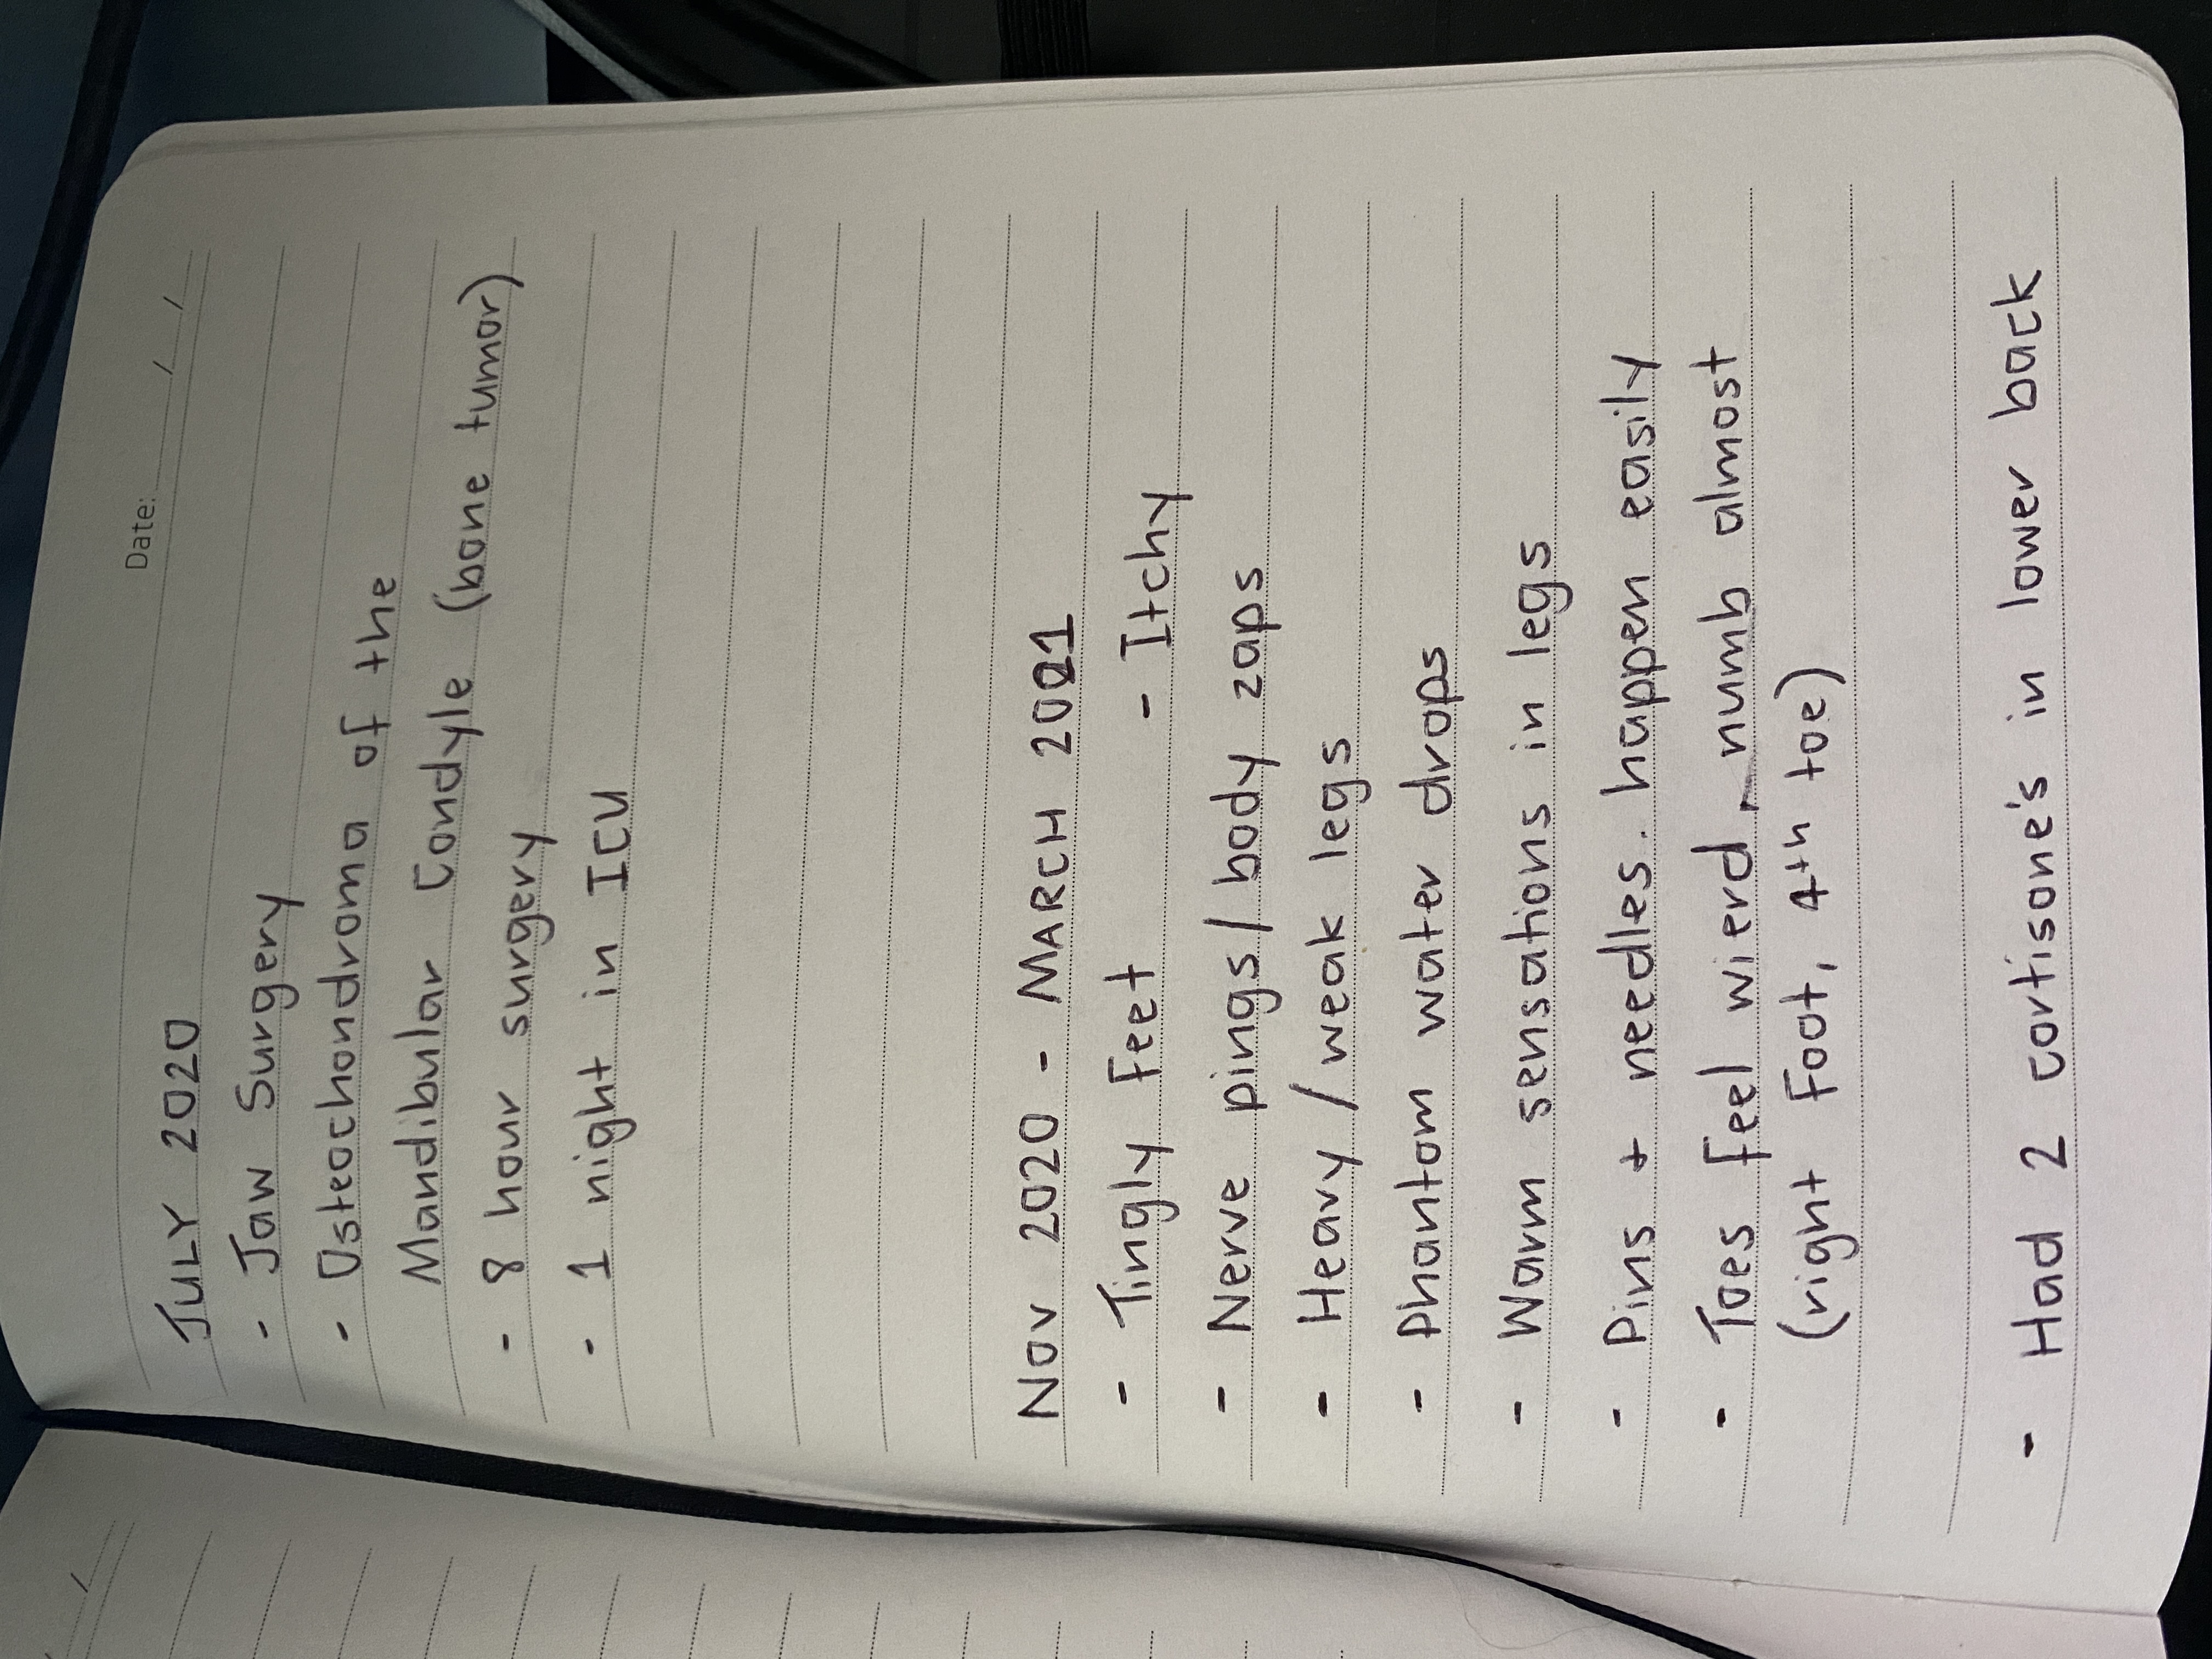 Date: / /
JULY 2020
- Jaw Surgery
- Osteochondroma of the
Mandibular Condyle (bone tumor)
- 8 hour surgery
- 1 night in ICU
NOV 2020 - MARCH 2021
- Tingly Feet - Itchy
- Nerve pings/body zaps
- Heavy/weak legs
- Phantom water drops
- Warm sensations in legs
- Pins + needles. happen easily
- Toes feel wierd, numb almost
(right foot, 4th toe)
- Had 2 cortisone's in lower back